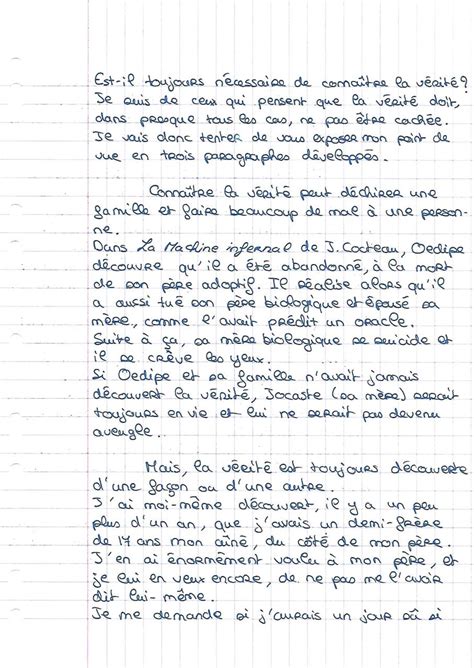 Est-il toujours nécessaire de connaître la vérité?
Je suis de ceux qui pensent que la vérité doit,
dans presque tous les cas, ne pas être cachée.
Je vais donc tenter de vous exposer mon point de
vue en trois paragraphes développés.
Connaître la vérité peut déchirer une
famille et faire beaucoup de mal à une person-
ne.
Dans La Machine infernal de J. Cocteau, Oedipe
découvre qu'il a été abandonné, à la mort
de son père adoptif. Il réalise alors qu'il
a aussi tué son père biologique et épousé sa
mère, comme l'avait prédit un oracle.
Suite à ça, sa mère biologique se suicide et
il se crève les yeux.
Si Oedipe et sa famille n'avait jamais
découvert la vérité, Jocaste (sa mère) serait
toujours en vie et lui ne serait pas devenu
aveugle...
Mais, la vérité est toujours découverte
d'une façon ou d'une autre.
J'ai moi-même découvert, il y a un peu
plus d'un an, que j'avais un demi-frère
de 17 ans mon aîné, du côté de mon père.
J'en ai énormément voulu à mon père, et
je lui en veux encore, de ne pas me l'avoir
dit lui-même.
Je me demande si j'aurais un jour où si